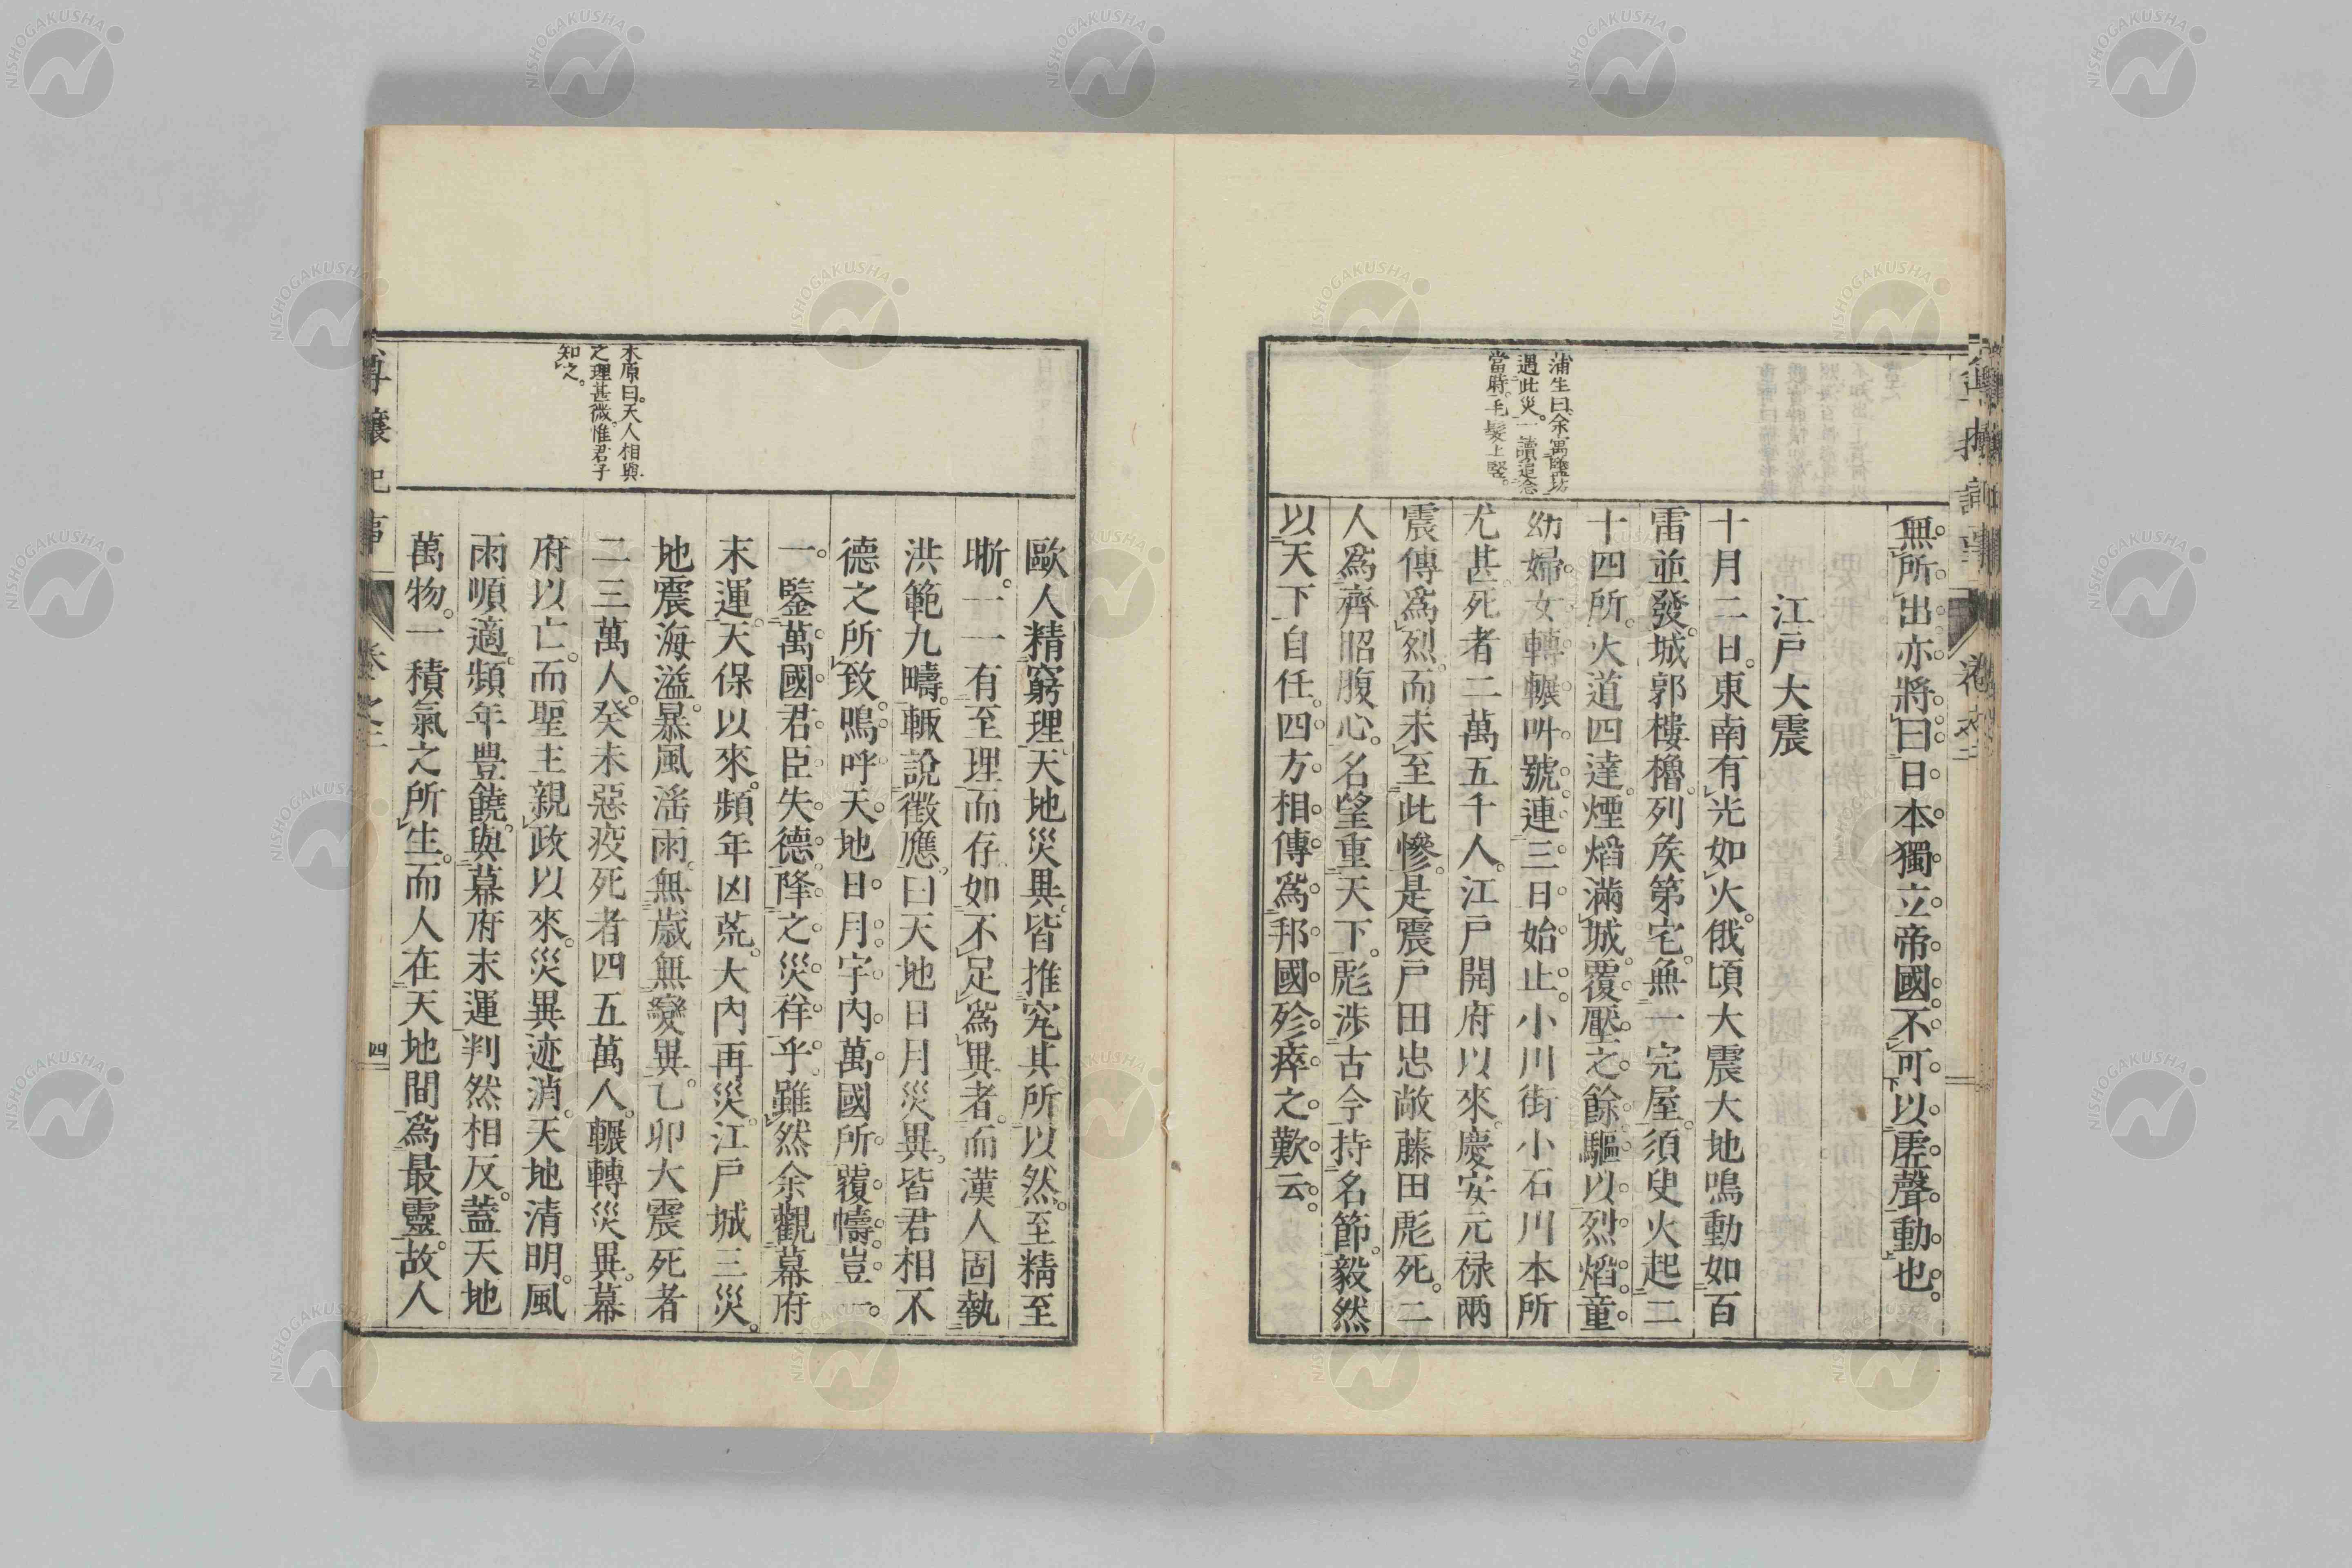 無所出亦將曰日本獨立帝國不可以虛聲動也。
江戸大震
十月二日。東南有光如火。俄頃大震大地鳴動如百
雷並發。城郭樓櫓。列侯第宅。無一完屋。須臾火起二
十四所。火道四達。煙焰滿城。覆壓之餘。驅以烈焰。童
幼婦女轉輾叫號。連三日始止。小川街小石川本所
尤甚。死者二萬五千人。江戸開府以來。慶安元祿兩
震傳爲烈。而未至此慘。是震戸田忠敞藤田彪死。二
人爲齊昭腹心。名望重天下。彪涉古今持名節。毅然
以天下自任。四方相傳爲邦國殄瘁之歎云。
蒲生曰。余寓鹽坊
遇此災。一讀追念
當時。毛髮上竪。
歐人精窮理。天地災異。皆推究其所以然。至精至
晰。一一有至理而存。如不足爲異者。而漢人固執
洪範九疇。輙說徵應。曰天地日月災異。皆君相不
德之所致。嗚呼。天地日月。宇内萬國所覆幬。豈一。
一。鑒萬國君臣失德。降之災祥乎。雖然余觀幕府
末運。天保以來。頻年凶荒。大内再災。江戸城三災。
地震海溢。暴風滛雨。無歲無變異。乙卯大震死者
二三萬人。癸未惡疫死者四五萬人。輾轉災異。幕
府以亡。而聖主親政以來。災異迹消。天地清明。風
雨順適。頻年豊饒。與幕府末運判然相反。蓋天地
萬物。一積氣之所生。而人在天地間爲最靈。故人
木原曰。天人相與
之理甚微。惟君子
知之。
尊攘紀事
卷之二
四
NISHOGAKUSHA